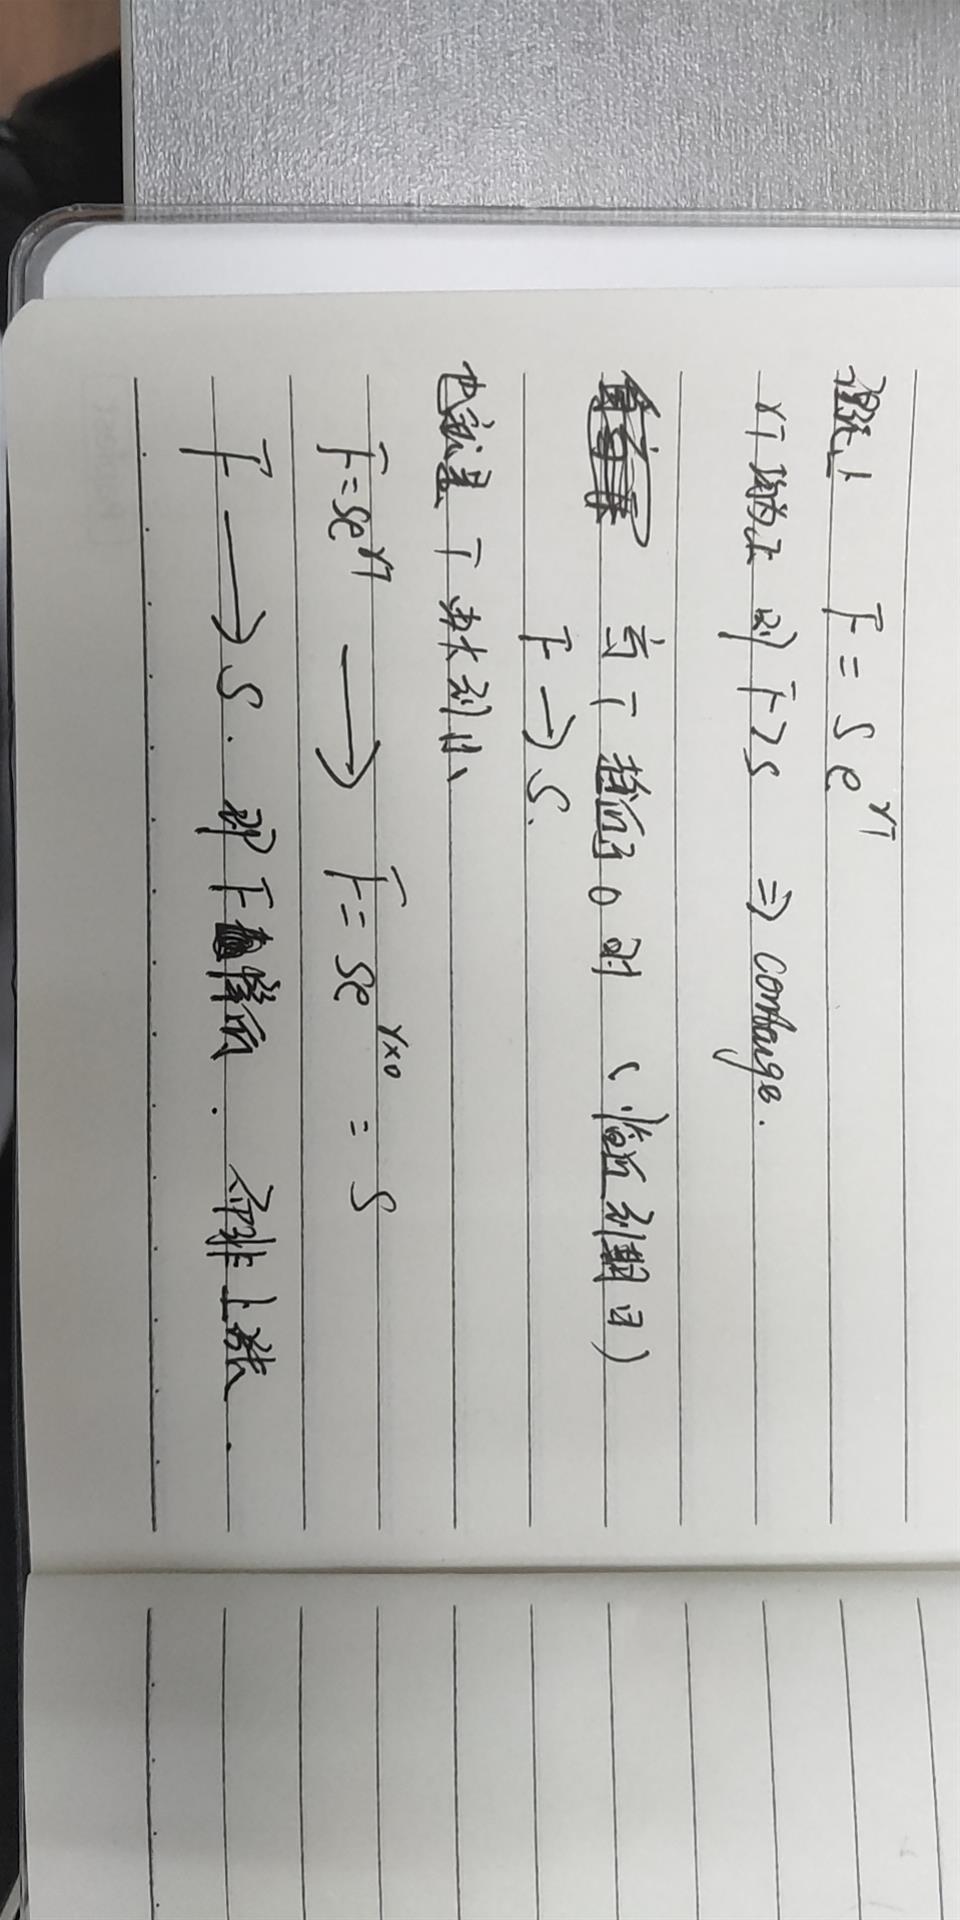 理论上 F = Se^{rT}
rT 均为正 则 F>S ⇒ contango.
当 T 趋近于 0 时 (临近到期日)
F → S.
也就是 T 从大到小
F=Se^{rT} → F=Se^{r×0} = S
F → S. 那 F 降低. 而非上涨.